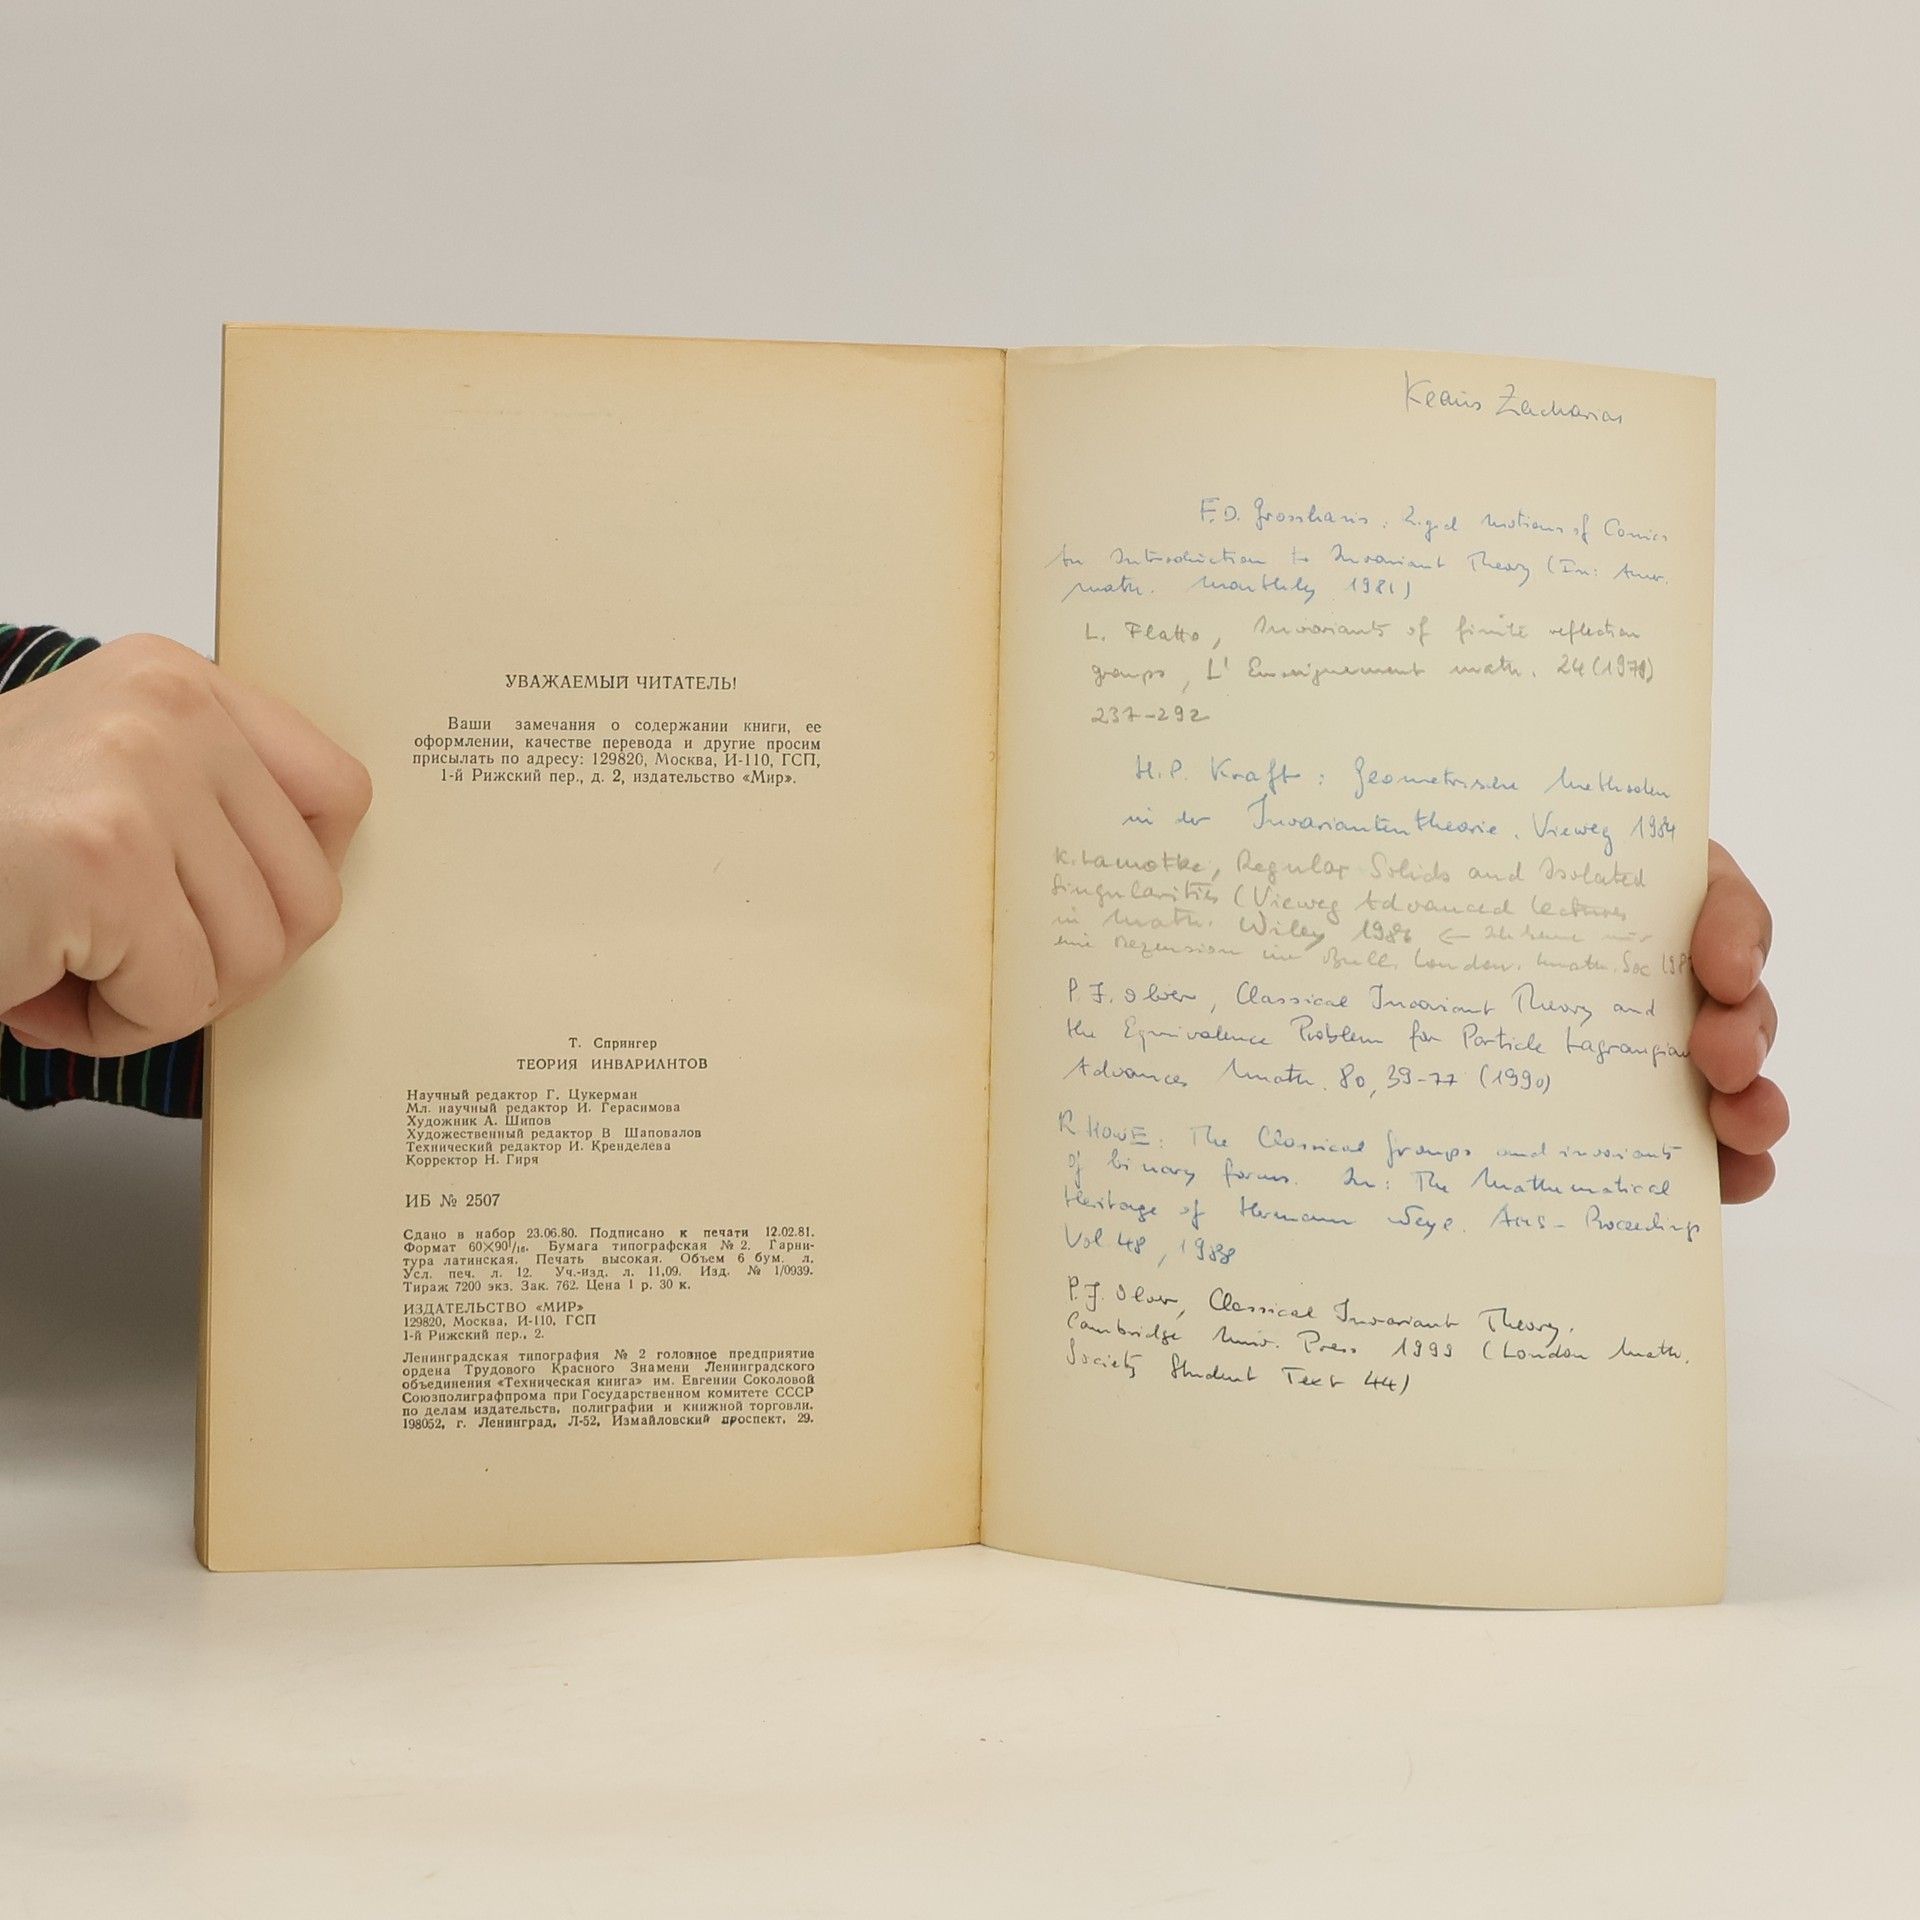 УВАЖАЕМЫЙ ЧИТАТЕЛЬ!
Ваши замечания о содержании книги, ее
оформлении, качестве перевода и другие просим
присылать по адресу: 129820, Москва, И-110, ГСП,
1-й Рижский пер., д. 2, издательство «Мир».
Т. Спрингер
ТЕОРИЯ ИНВАРИАНТОВ
Научный редактор Г. Цукерман
Мл. научный редактор И. Герасимова
Художник А. Шипов
Художественный редактор В Шаповалов
Технический редактор И. Кренделева
Корректор Н. Гиря
ИБ № 2507
Сдано в набор 23.06.80. Подписано к печати 12.02.81.
Формат 60×90¹/₁₆. Бумага типографская № 2. Гарни-
тура латинская. Печать высокая. Объем 6 бум. л.
Усл. печ. л. 12. Уч.-изд. л. 11,09. Изд. № 1/0939.
Тираж 7200 экз. Зак. 762. Цена 1 р. 30 к.
ИЗДАТЕЛЬСТВО «МИР»
129820, Москва, И-110, ГСП
1-й Рижский пер., 2.
Ленинградская типография № 2 головное предприятие
ордена Трудового Красного Знамени Ленинградского
объединения «Техническая книга» им. Евгении Соколовой
Союзполиграфпрома при Государственном комитете СССР
по делам издательств, полиграфии и книжной торговли.
198052, г. Ленинград, Л-52, Измайловский проспект, 29.
Klaus Zacharias
F.D. Grosshans: Rigid Motions of Conics
An Introduction to Invariant Theory (In: Amer.
math. Monthly 1981)
L. Flatto, Invariants of finite reflection
groups, L' Enseignement math. 24 (1978)
237-292
H.P. Kraft: Geometrische Methoden
in der Invariantentheorie. Vieweg 1984
K. Lamotke, Regular Solids and Isolated
Singularities (Vieweg Advanced Lectures
in Math. Wiley 1986 ← Ich kenne nur
eine Rezension im Bull. London. Math. Soc
P.J. Olver, Classical Invariant Theory and
the Equivalence Problem for Particle Lagrangian
Advances Math. 80, 39-77 (1990)
R. HOWE: The Classical groups and invariants
of binary forms. In: The Mathematical
Heritage of Hermann Weyl. AMS - Proceedings
Vol 48, 1988
P.J. Olver, Classical Invariant Theory.
Cambridge Univ. Press 1999 (London Math.
Society Student Text 44)